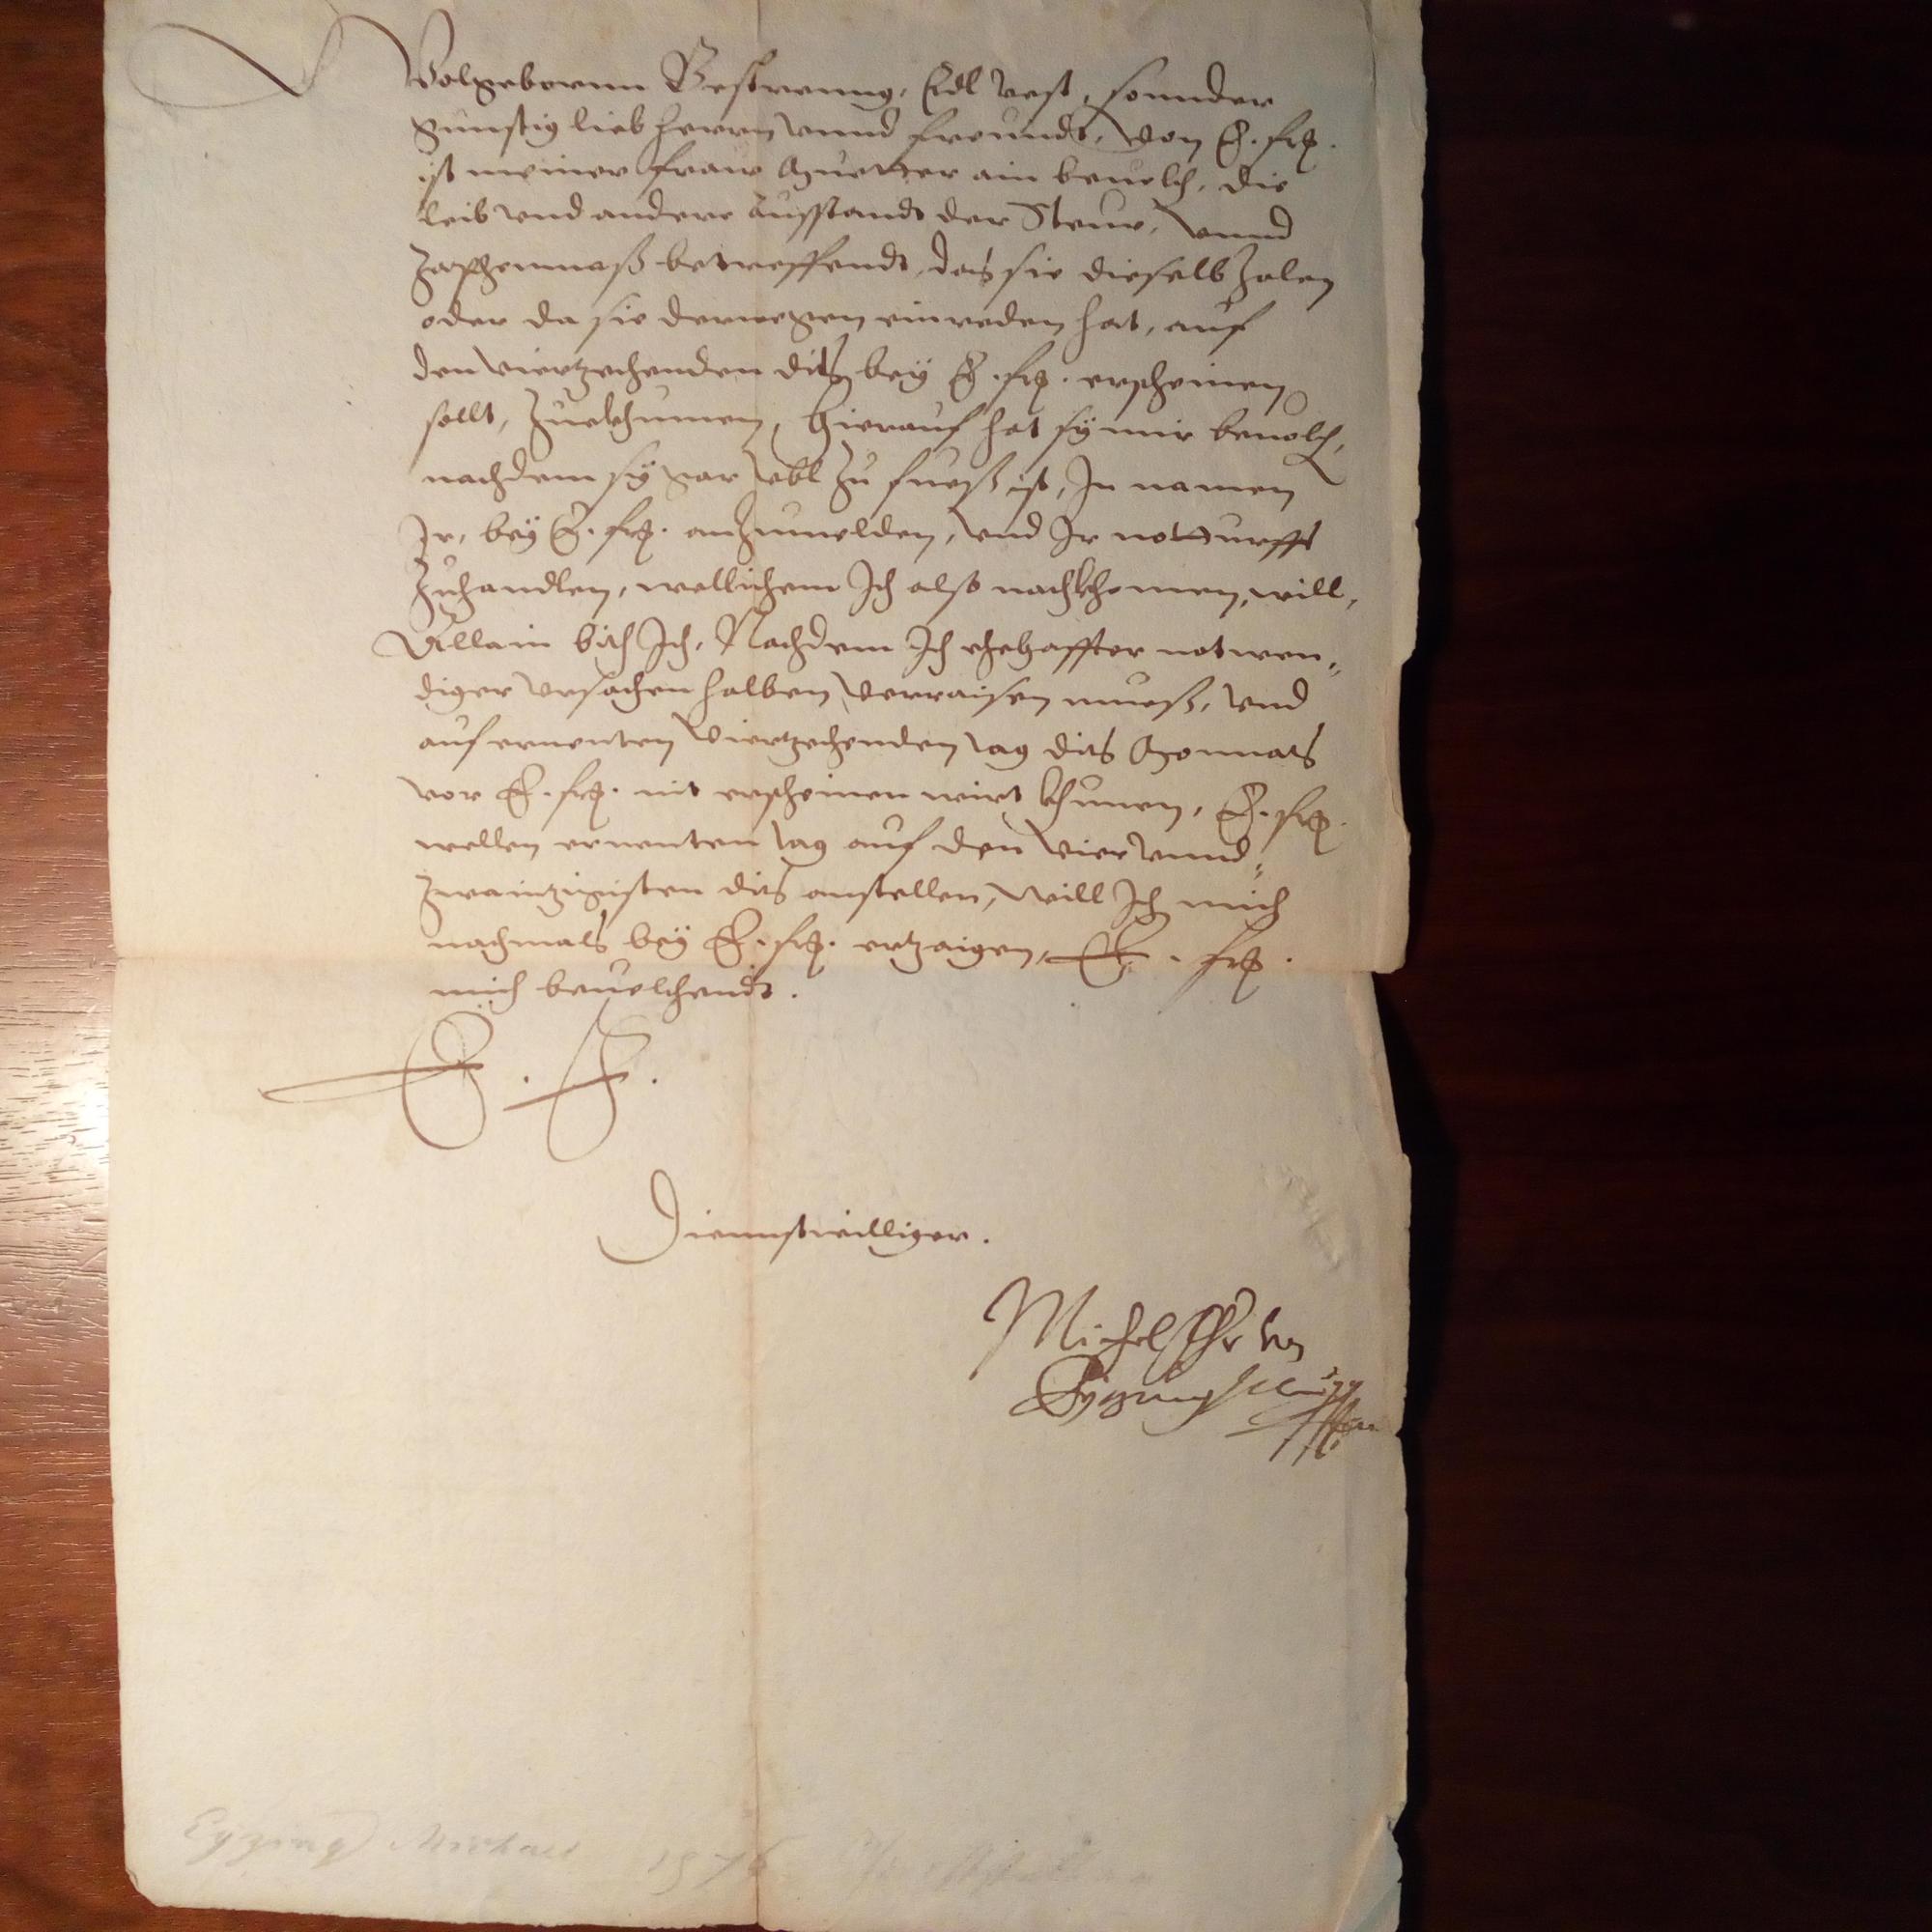 Wolgebornn Gestrenng, Edl Vest, sonnder
gunstig lieb herrn vnnd freundt, Von E. frg.
ist meiner fraw Muetter ain beuelch, die
leib vnd andere Ausstandt der Steur, vnnd
Zapfhenmaß betreffendt, das sie dieselb Zalen
oder da sie derwegen einreden hat, auf
den viertzehenden dits bey E. frg. erscheinen
sollt, Zuekhumen, Hierauf hat sÿ mir beuolch,
nachdem sÿ gar vbl Zu fueß ist, In namen
Ir, bey E. frg. anZumelden, vnd Ir notturfft
Zuhandlen, wellichem Ich also nachkhomen, will,
Allain bith Ich, Nachdem Ich ehehaffter notwen„
diger vrsachen halben Verraisen mueß, vnd
auf ernenten Viertzehenden tag dits Monnats
vor E. frg. nit erscheinen wirt khunen, E. frg.
wellen ernenten tag auf den Viervnnd„
Zwaintzigisten dits anstellen, Will Ich mich
nachmals bey E. frg. ertzaigen, E. frg.
mich beuelchendt.
E. F.
Diennstwilliger.
Michel Fhr von
Eyzing
Eyzing Michael